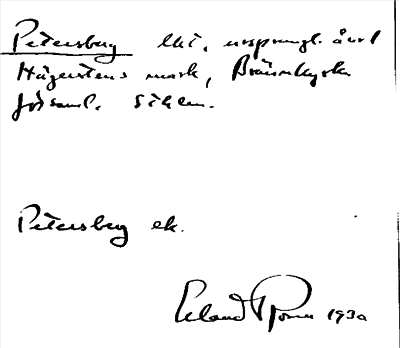 Petersberg lht. ursprungl. å url
Hägerstens mark, Brännkyrka
församl. Sthlm.
Petersberg ek.
Erland Rosen 1930